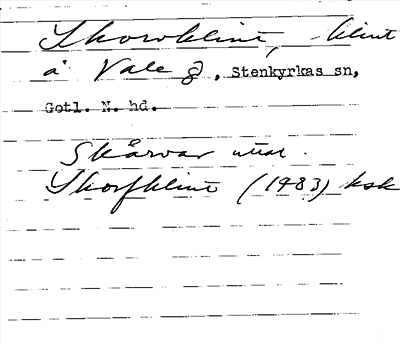 Skorvklint, klint
å Vale g, Stenkyrkas sn,
Gotl. N. hd.
Skårvar uttal.
Skorfklint (1983) ksk